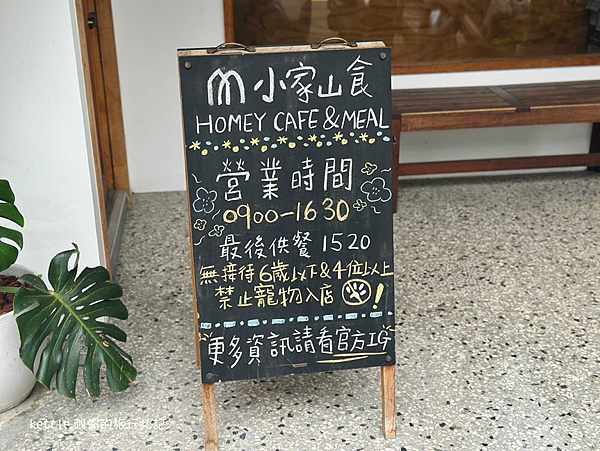 小家山食
HOMEY CAFE & MEAL
營業時間
0900-1630
最後供餐 1520
無接待6歲以下&4位以上
禁止寵物入店 !
更多資訊請看官方IG
kettle.刺蝟的旅行札記